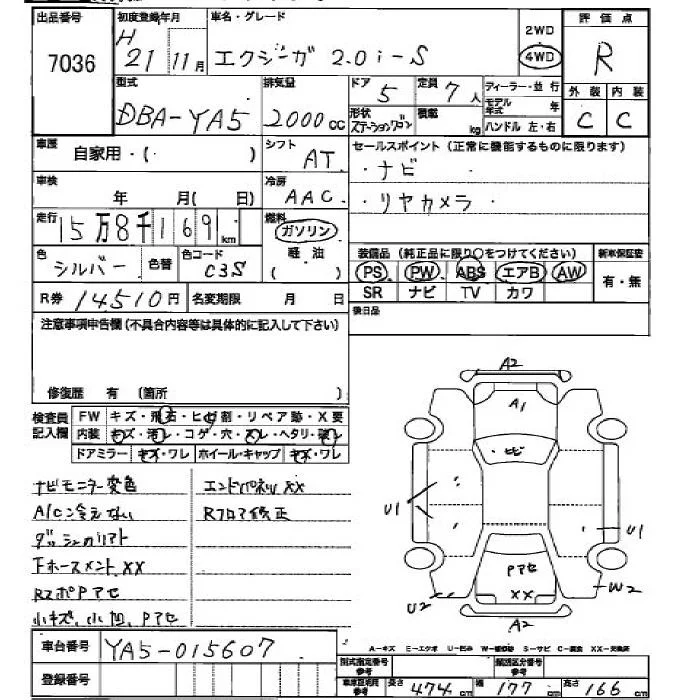 出品番号 初度登録年月 車名・グレード 2WD 評価点
7036 H21 11月 エクシーガ 2.0i-S 4WD R
型式 排気量 ドア 定員 ディーラー・並行 外装 内装
DBA-YA5 2000cc 5 7人 モデル年式 年 C C
形状 ステーションワゴン 積載 kg ハンドル 左・右
車歴 自家用・( ) シフト AT セールスポイント(正常に機能するものに限ります)
・ナビ・
車検 年 月( 日) 冷房 AAC ・リヤカメラ
走行 15万8千169km 燃料 ガソリン
軽油 装備品(純正品に限り○をつけてください) 新車保証書
色 シルバー 色替 色コード C3S PS PW ABS エアB AW 有・無
R券 14,510円 名変期限 月 日 SR ナビ TV カワ
注意事項申告欄(不具合内容等は具体的に記入して下さい) 後日品
修復歴 有 (箇所 )
検査員記入欄 FW キズ・飛石・ヒビ割・リペア跡・X要
内装 キズ・汚レ・コゲ・穴・スレ・ヘタリ・破レ
ドアミラー キズ・ワレ ホイール・キャップ キズ・ワレ
ナビモニター変色 エンドパネルXX
A/C冷えない Rフロア修正
ダッシュカリアト
下ホースメントXX
RスポPアセ
小キズ、小凹、Pアセ
A2
A1
ヒビ
U1 U1
Pアセ
XX
U2 W2
A2
車台番号 YA5-015607
登録番号
A-キズ E-エクボ U-凹み W-補修跡 S-サビ C-腐食 XX-交換済
型式指定番号 類別区分番号
車庫証明用参考 長さ 474cm 幅 177cm 高さ 166cm